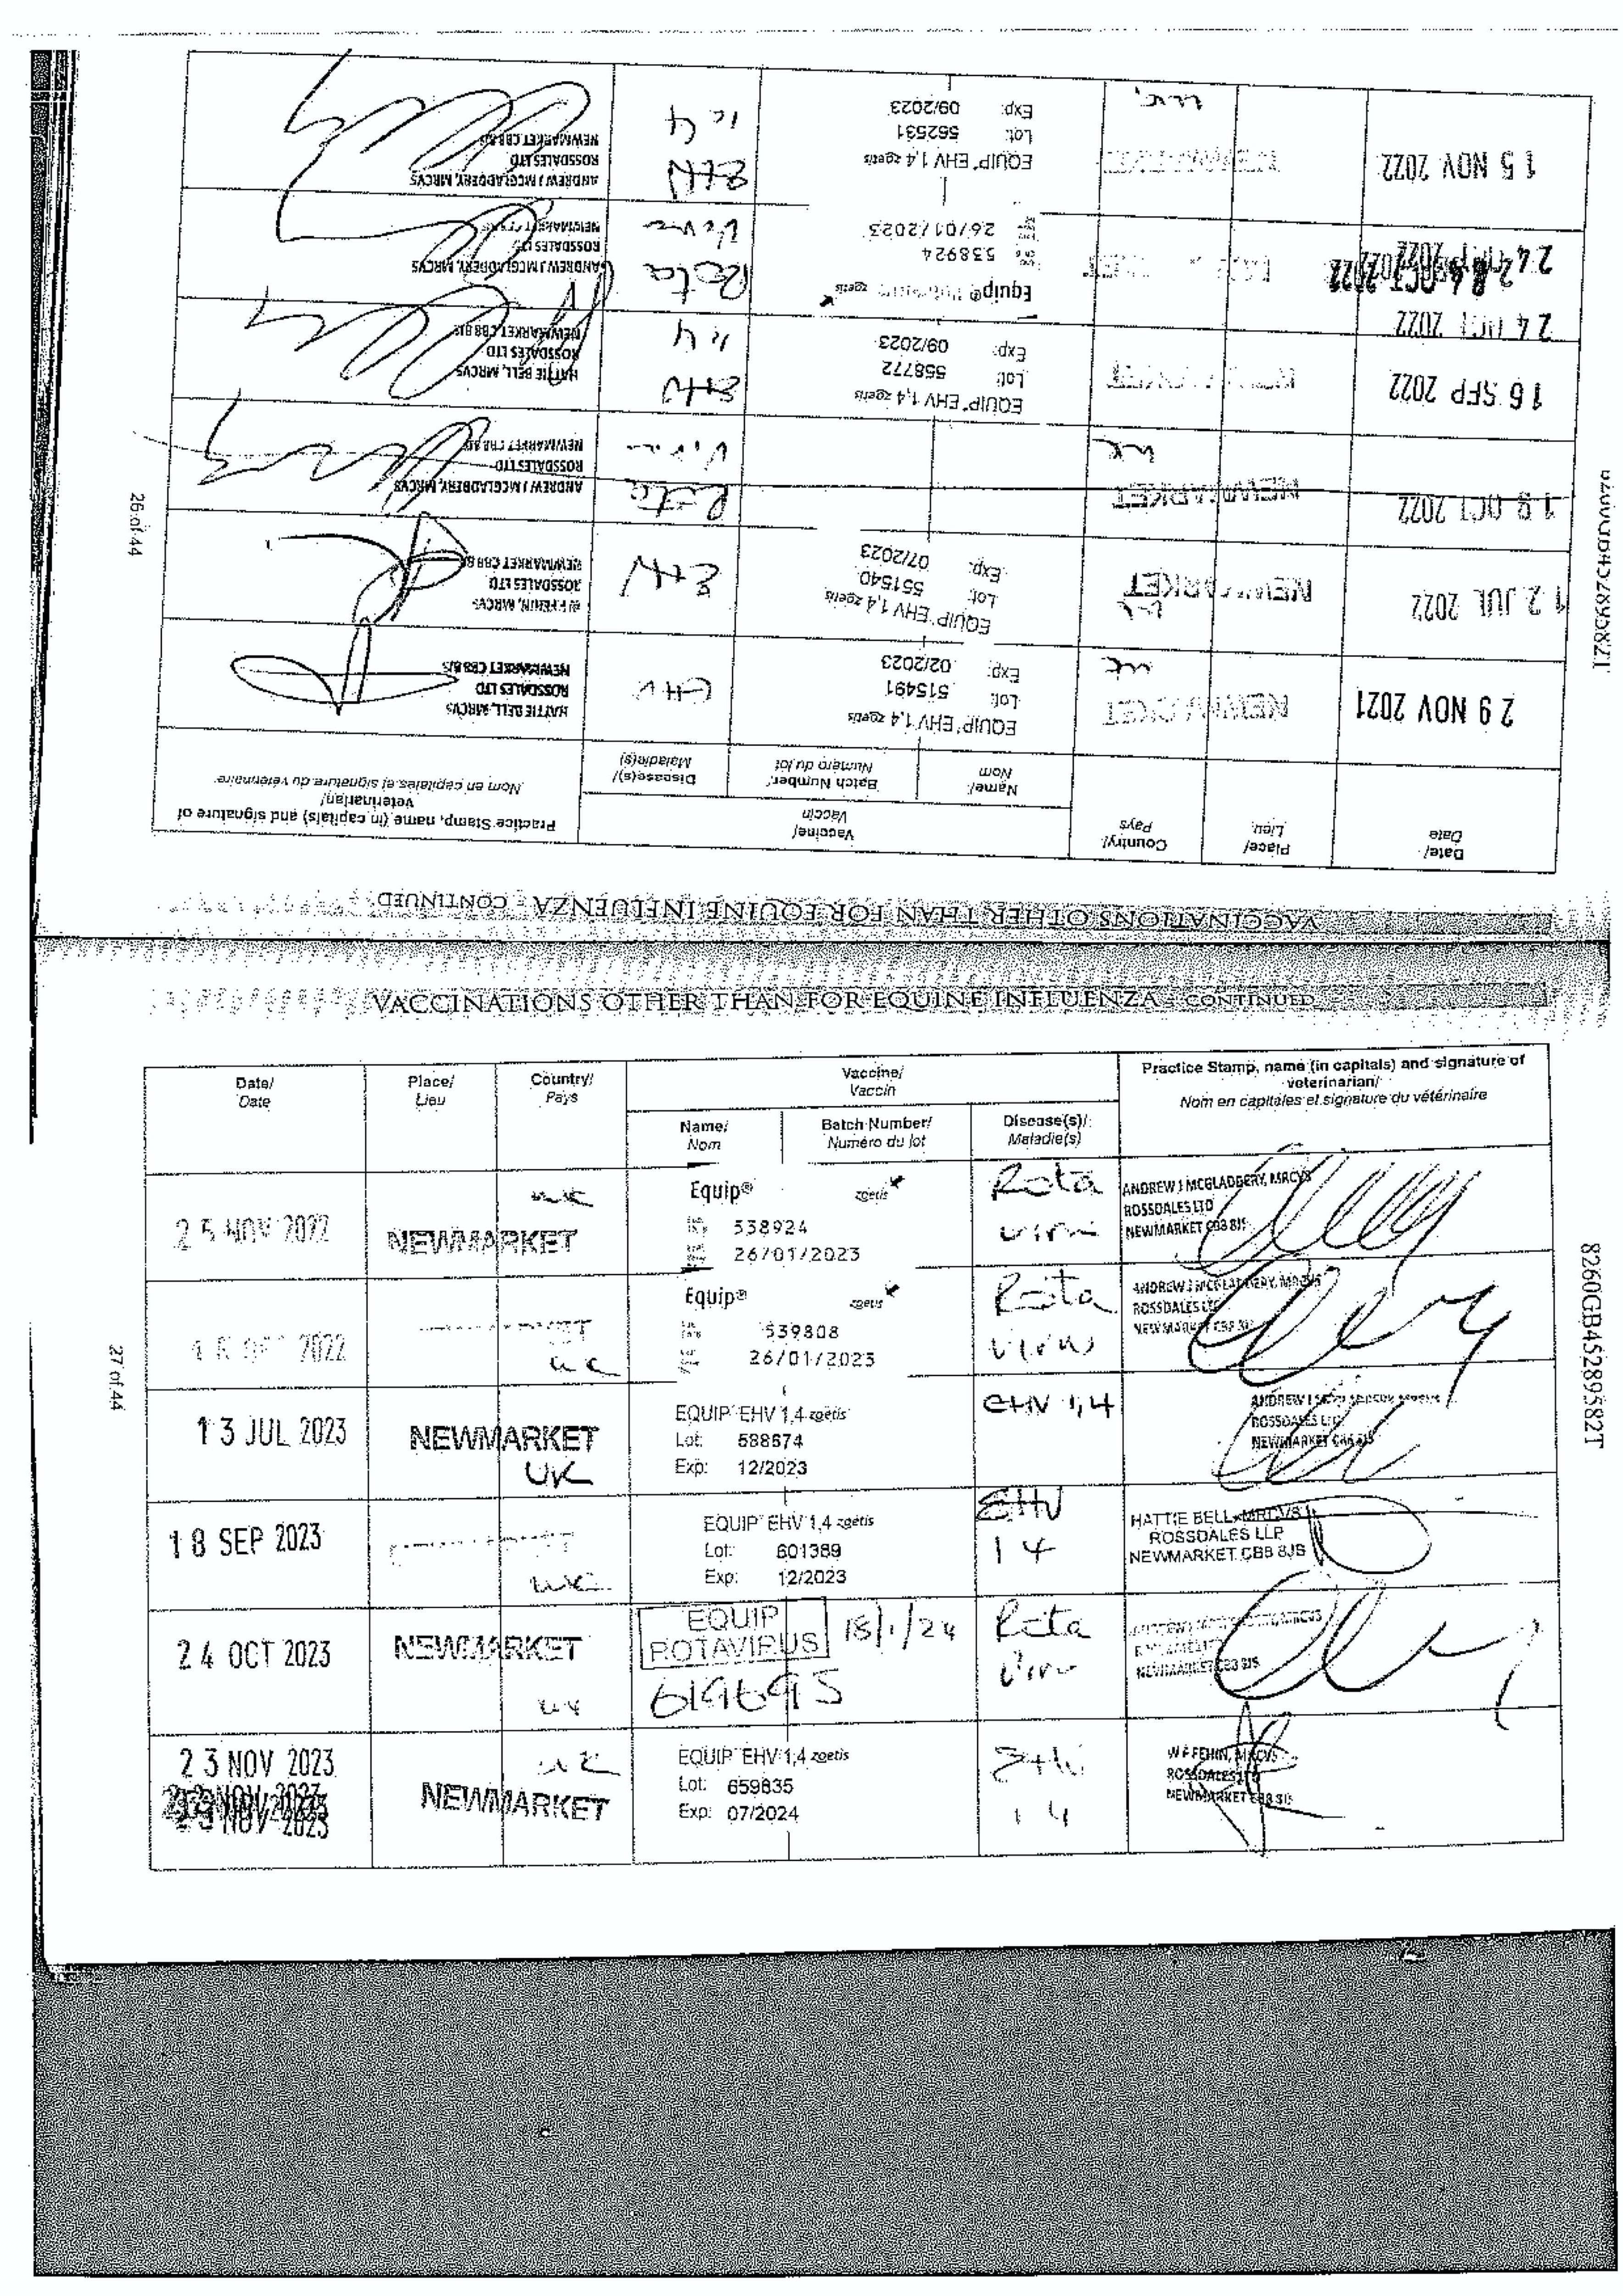 VACCINATIONS OTHER THAN FOR EQUINE INFLUENZA - CONTINUED
Date/
Date
Place/
Lieu
Country/
Pays
Vaccine/
Vaccin
Name/
Nom
Batch Number/
Numéro du lot
Disease(s)/
Maladie(s)
Practice Stamp, name (in capitals) and signature of
veterinarian/
Nom en capitales et signature du vétérinaire
29 NOV 2021
NEWMARKET
UK
EQUIP EHV 1,4 zoetis
Lot: 515491
Exp: 02/2023
EHV
HATTIE BELL, MRCVS
ROSSDALES LTD
NEWMARKET CB8 8JS
12 JUL 2022
NEWMARKET
UK
EQUIP EHV 1,4 zoetis
Lot: 551540
Exp: 07/2023
EHV
W F FEHIN, MRCVS
ROSSDALES LTD
NEWMARKET CB8 8JS
19 OCT 2022
NEWMARKET
UK
Rota
Virus
ANDREW J MCGLADDERY, MRCVS
ROSSDALES LTD
NEWMARKET CB8 8JS
16 SEP 2022
NEWMARKET
EQUIP EHV 1,4 zoetis
Lot: 558772
Exp: 09/2023
EHV
1,4
HATTIE BELL, MRCVS
ROSSDALES LTD
NEWMARKET CB8 8JS
24 OCT 2022
Equip® zoetis
538924
26/01/2023
Rota
Virus
ANDREW J MCGLADDERY, MRCVS
ROSSDALES LTD
NEWMARKET
15 NOV 2022
NEWMARKET
UK
EQUIP EHV 1,4 zoetis
Lot: 562531
Exp: 09/2023
EHV
1,4
ANDREW J MCGLADDERY, MRCVS
ROSSDALES LTD
NEWMARKET CB8 8JS
26 of 44
VACCINATIONS OTHER THAN FOR EQUINE INFLUENZA - CONTINUED
Date/
Date
Place/
Lieu
Country/
Pays
Vaccine/
Vaccin
Name/
Nom
Batch Number/
Numéro du lot
Disease(s)/
Maladie(s)
Practice Stamp, name (in capitals) and signature of
veterinarian/
Nom en capitales et signature du vétérinaire
25 NOV 2022
NEWMARKET
UK
Equip® zoetis
538924
26/01/2023
Rota
Virus
ANDREW J MCGLADDERY, MRCVS
ROSSDALES LTD
NEWMARKET CB8 8JS
2022
UK
Equip® zoetis
539808
26/01/2023
Rota
Virus
ANDREW J MCGLADDERY, MRCVS
ROSSDALES LTD
NEWMARKET CB8 8JS
13 JUL 2023
NEWMARKET
UK
EQUIP EHV 1,4 zoetis
Lot: 588674
Exp: 12/2023
EHV 1,4
ROSSDALES LTD
NEWMARKET CB8 8JS
18 SEP 2023
UK
EQUIP EHV 1,4 zoetis
Lot: 601389
Exp: 12/2023
EHV
1 4
HATTIE BELL, MRCVS
ROSSDALES LLP
NEWMARKET CB8 8JS
24 OCT 2023
NEWMARKET
UK
EQUIP
ROTAVIRUS
18/1/24
619695
Rota
Virus
NEWMARKET CB8 8JS
23 NOV 2023
23 NOV 2023
NEWMARKET
UK
EQUIP EHV 1,4 zoetis
Lot: 659835
Exp: 07/2024
EHV
1 4
W F FEHIN, MRCVS
ROSSDALES LTD
NEWMARKET CB8 8JS
27 of 44
8260GB45289582T